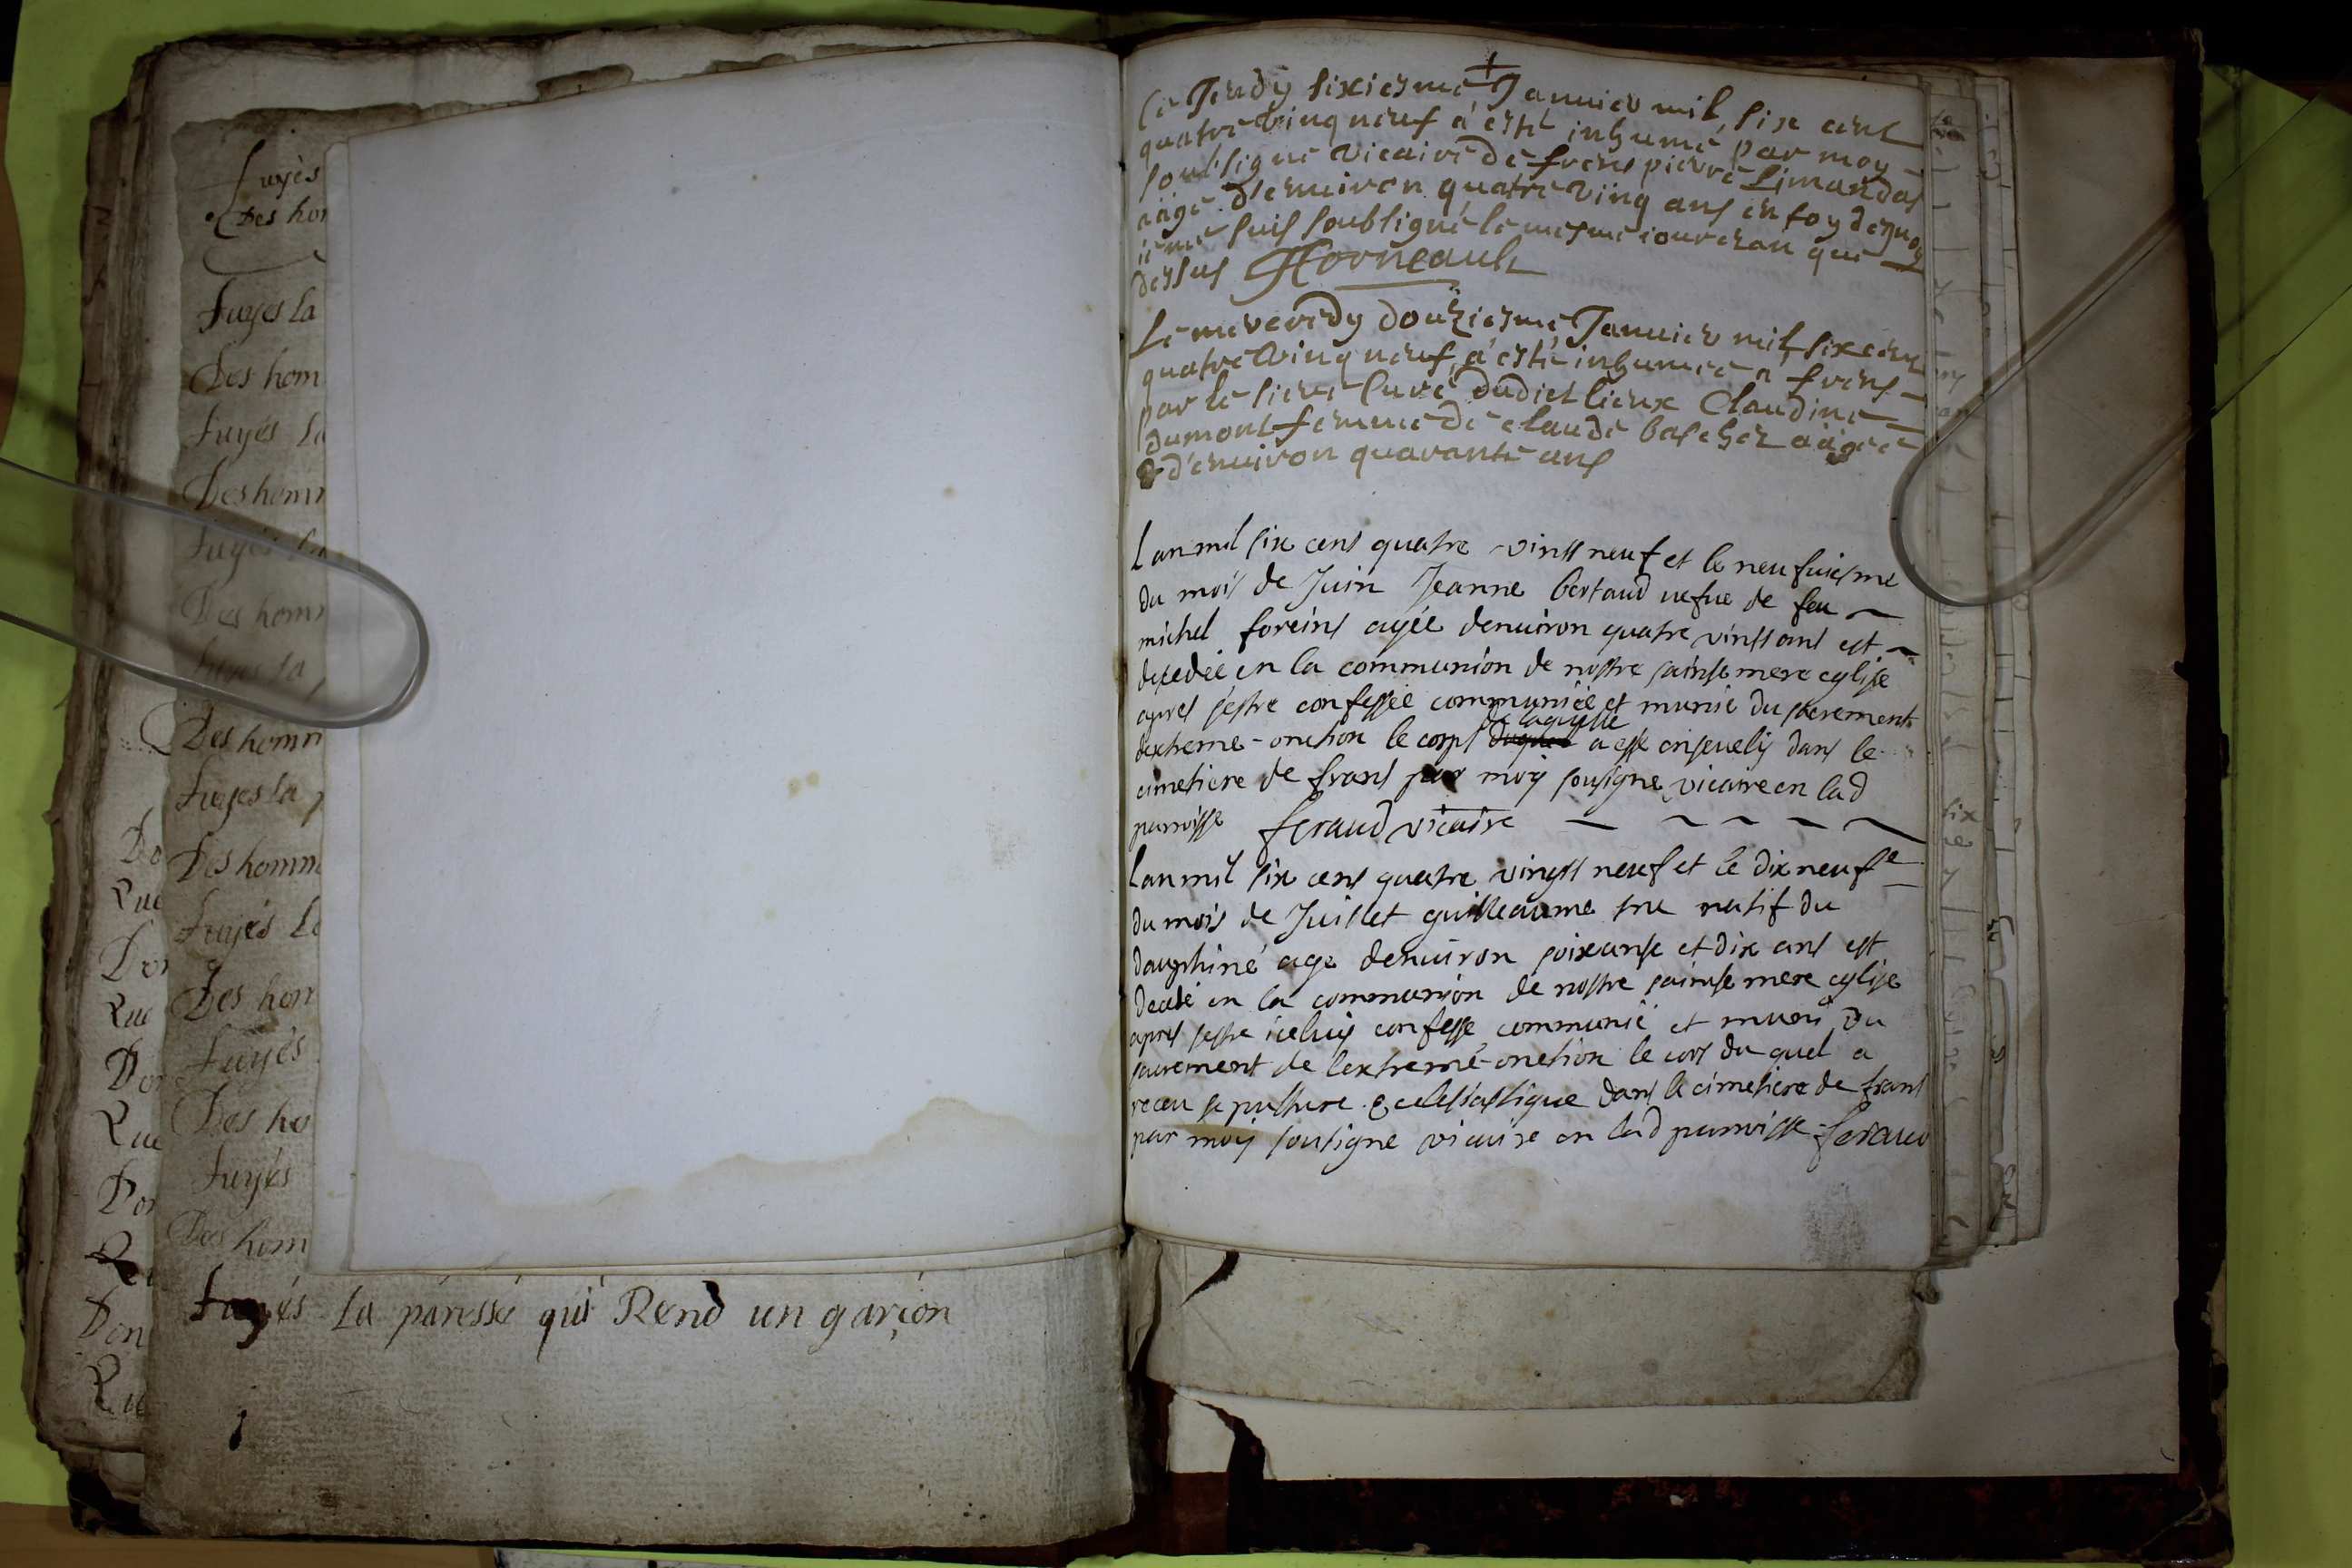 fuyès
Des hom
Fuyes la
Des hom
Fuyés La
Des homm
Fuyés La
Des homm
fuyés la
Des homm
Fuyes la p
Des homm
Fuyés La
Des hom
Fuyés
Des ho
Fuyés
Des hom
Fuyés La paressé qui Rend un garçon
Do
Rue
Don
Rue
Don
Rue
Don
Don
Rue
Ce Jeudy sixiesme Januier mil six cent
quatre vinq neuf a esté inhumé par moy
soubsigné vicaire de frens pierre Limandas
aâgé d'enuiron quatre vinq ans en foy dequoy
ie me suis soubsigné le mesme iour et an que
dessus Horneault
Le mecredy douziesme Januier mil six cent
quatre vinq neuf a esté inhumeé a frens
par le sieur Curé dudict lieux Claudine
dumont femme de claude bascher aâgeé
d'enuiron quarante ans
Lan mil six cens quatre vints neuf et le neufuiesme
du mois de Juin Jeanne bertaud uefue de feu
michel foreins agée denuiron quatre vints ans est
decedée en la communion de nostre sainte mere eglise
apres s'estre confessée communiée et munie du sacrement
dextreme-onction le corps duquel de laquelle a esté enseuely dans le
cimetiere de frans par moy sousigne vicaire en lad
parroisse feraud vicaire
Lan mil six cens quatre vingts neuf et le dix neufe
du mois de Juillet guilleaume natif du
dauphiné age denuiron soixante et dix ans est
decedé en la communion de nostre sainte mere eglise
apres sestre iceluy confesse communié et muni du
sacrement de lextreme-onction le cors du quel a
receu sepulture eclesiastique dans le cimetiere de frans
par moy soutigne vicaire en lad parroisse feraud